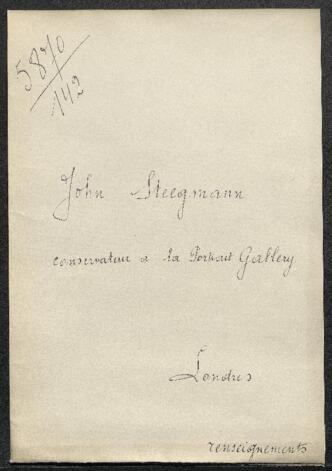 5870
142
John Steegmann
conservateur à la Portrait Gallery
Londres
renseignements